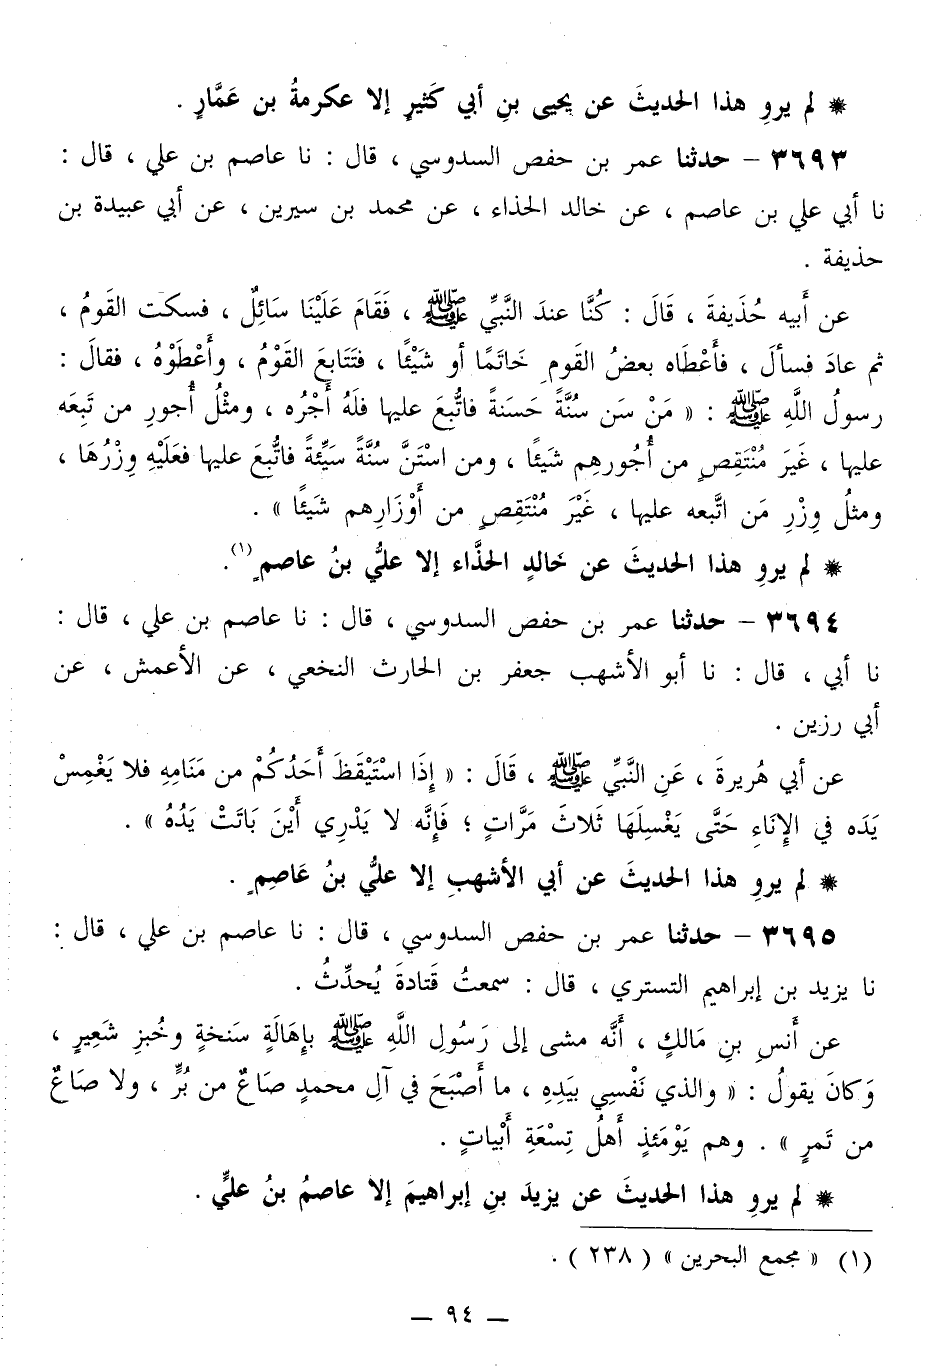 * لم يروِ هذا الحديثَ عن يحيى بنِ أبي كَثيرٍ إلا عكرمةُ بن عَمَّارٍ .
٣٦٩٣ – حدثنا عمر بن حفص السدوسي ، قال : نا عاصم بن علي ، قال :
نا أبي علي بن عاصم ، عن خالد الحذاء ، عن محمد بن سيرين ، عن أبي عبيدة بن
حذيفة .
عن أَبيه حُذَيفةَ ، قَالَ : كُنَّا عندَ النَّبيِّ ﷺ ، فَقَامَ عَلَيْنَا سَائِلٌ ، فسكت القَومُ ،
ثم عادَ فسألَ ، فأَعْطَاه بعضُ القَومِ خَاتَمًا أو شَيْئًا ، فتَتَابعَ القَوْمُ ، وأَعْطَوْهُ ، فقالَ :
رسولُ اللَّهِ ﷺ : « مَنْ سَن سُنَّةً حَسَنةً فاتُّبعَ عليها فلَهُ أَجْرُه ، ومثْلُ أُجورِ من تَبِعَه
عليها ، غَيرَ مُنْتَقِصٍ من أُجُورهِم شَيئًا ، ومن اسْتَنَّ سُنَّةً سَيِّئةً فاتُّبعَ عليها فعَلَيْهِ وِزْرُهَا ،
ومثلُ وِزْرِ مَن اتَّبعه عليها ، غَيْرَ مُنْتَقِصٍ من أَوْزَارِهم شَيئًا » .
* لم يروِ هذا الحديثَ عن خَالدٍ الحَذَّاء إلا عليُّ بنُ عاصمٍ(١).
٣٦٩٤ – حدثنا عمر بن حفص السدوسي ، قال : نا عاصم بن علي ، قال :
نا أبي ، قال : نا أبو الأشهب جعفر بن الحارث النخعي ، عن الأعمش ، عن
أبي رزين .
عن أبي هُريرةَ ، عَنِ النَّبيِّ ﷺ ، قَالَ : « إِذَا اسْتَيْقَظَ أَحَدُكُمْ من مَنَامِهِ فلا يَغْمِسْ
يَدَه في الإِنَاءِ حَتَّى يَغْسِلَهَا ثَلاثَ مَرَّاتٍ ؛ فَإِنَّه لا يَدْرِي أَيْنَ بَاتَتْ يَدُهُ » .
* لم يروِ هذا الحديثَ عن أبي الأشهبِ إلا عليُّ بنُ عَاصِمٍ .
٣٦٩٥ – حدثنا عمر بن حفص السدوسي ، قال : نا عاصم بن علي ، قال :
نا يزيد بن إبراهيم التستري ، قال : سمعتُ قَتادةَ يُحدِّثُ .
عن أَنسِ بنِ مَالكٍ ، أَنَّه مشى إلى رَسُولِ اللَّهِ ﷺ بإِهَالَةٍ سَنخةٍ وخُبزِ شَعِيرٍ ،
وَكانَ يقولُ : « والذي نَفْسِي بيَدِهِ ، ما أَصْبَحَ في آلِ محمدٍ صَاعٌ من بُرٍّ ، ولا صَاعٌ
من تَمرٍ » . وهم يَوْمَئذٍ أَهلُ تِسْعَةِ أَبْياتٍ .
* لم يروِ هذا الحديثَ عن يزيدَ بنِ إبراهيمَ إلا عاصمُ بنُ عليٍّ .
(١) « مجمع البحرين » ( ٢٣٨ ) .
– ٩٤ –